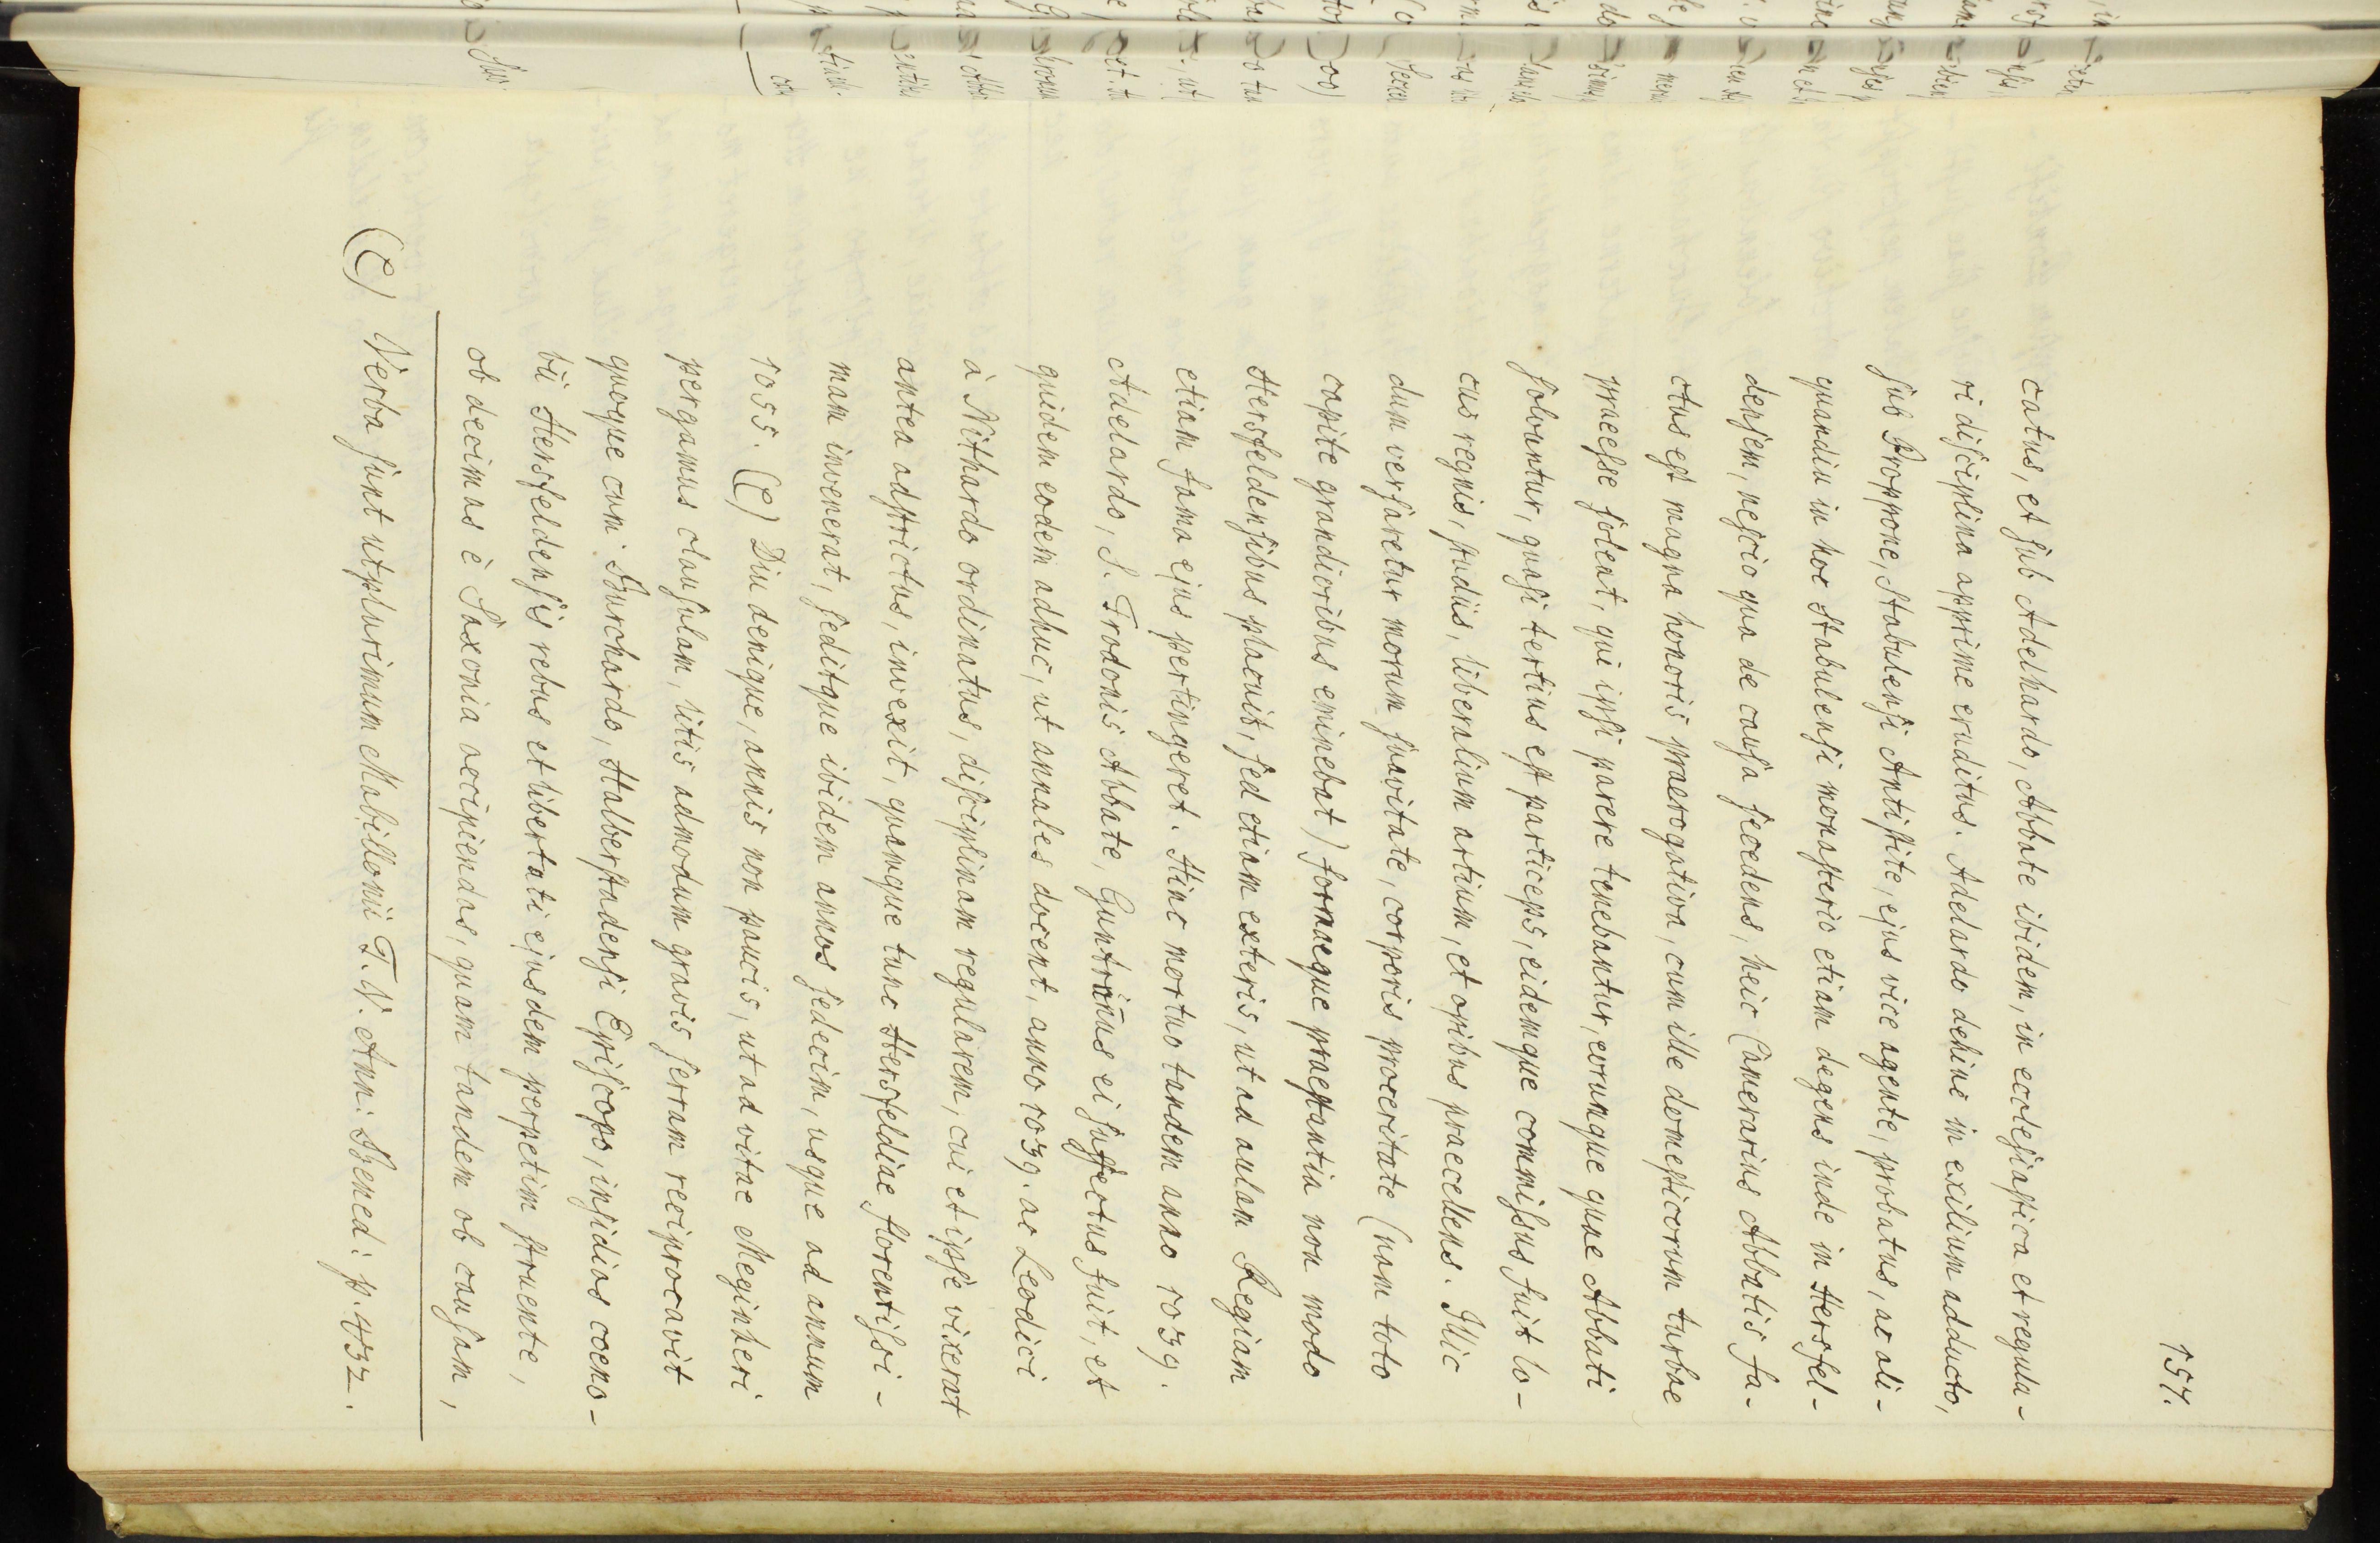 157.
catus, et ſub Adelhardo, Abbate ibidem, in eccleſiaſtica et regula-
ri diſciplina apprime eruditus. Adelardo dehinc in exilium adducto,
ſub Poppone, Stabulenſi Antiſtite, ejus vice agente, probatus, ac ali-
quandiu in hoc Stabulenſi monaſterio etiam degens inde in Hersfel-
denſem, neſcio qua de cauſa ſecedens, heic Camerarius Abbatis fa-
ctus eſt magna honoris praerogativa, cum ille domeſticorum turbae
praeeſse ſoleat, qui ipſi parere tenebantur, eorumque quae Abbati
ſolvuntur, quaſi tertius eſt particeps, eidemque commiſsus fuit lo-
cus regnis, ſtudiis, liberalium artium, et opibus praecellens. Illic
dum verſaretur morum ſuavitate, corporis proceritate (nam toto
capite grandioribus eminebat) formaeque praeſtantia non modo
Hersfeldenſibus placuit, ſed etiam exteris, ut ad aulam Regiam
etiam fama ejus pertingeret. Hinc mortuo tandem anno 1039.
Adelardo, S. Trodonis Abbate, Guntramus ei ſuffectus fuit, et
quidem eodem adhuc, ut annales docent, anno 1039. ac Leodici
à Nithardo ordinatus, diſciplinam regularem, cui et ipſe vixerat
antea adſtrictus, invexit, quamque tunc Hersfeldiae florentiſsi-
mam invenerat, ſeditque ibidem annos ſedecim, usque ad annum
1055. (C) Diu denique, annis non paucis, ut ad vitae Meginheri
pergamus clauſulam, litis admodum gravis ſerram reciprocavit
quoque cum Burchardo, Halberſtadenſi Epiſcopo, inſidias coeno-
bii Hersfeldenſis rebus et libertati ejusdem perpetim ſtruente,
ob decimas è Saxonia accipiendas, quam tandem ob cauſam,
(C) Verba ſunt utplurimum Mabillonii T. IV. Ann: Bened: p. 432.